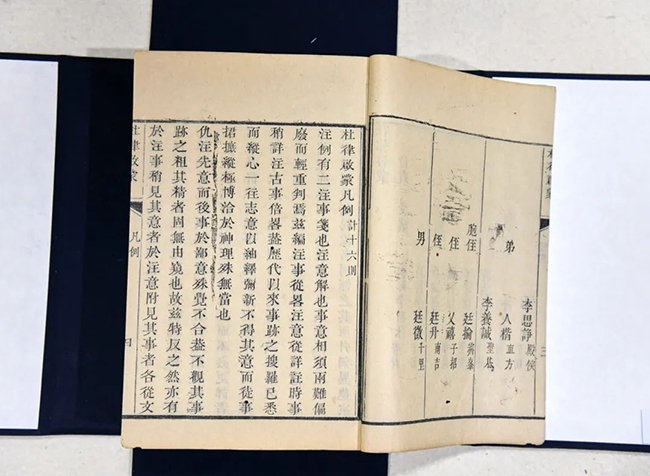 三
李思諍 殿侯
弟 人楷 直方
李養誠
胞侄 廷掄
侄 乂禧 子招
侄 廷升 南吉
男 廷徵 千里
杜律啟蒙凡例 計十六則
注例有二注事箋也注意解也事意相須兩難偏
廢而輕重判焉茲編注事從畧注意從詳註時事
稍詳注古事倍畧葢歷代以來事跡之搜羅已悉
而縱心一往志意以紬繹彌新不得其意而徒事
捃摭縱極博洽於神理殊無當也
仇注先意而後事於鄙意殊覺不合葢不觀其事
跡之粗其精者固無由見也故茲特反之然亦有
於注事稍見其意者於注意附見其事者各從文
杜律啟蒙 凡例 四